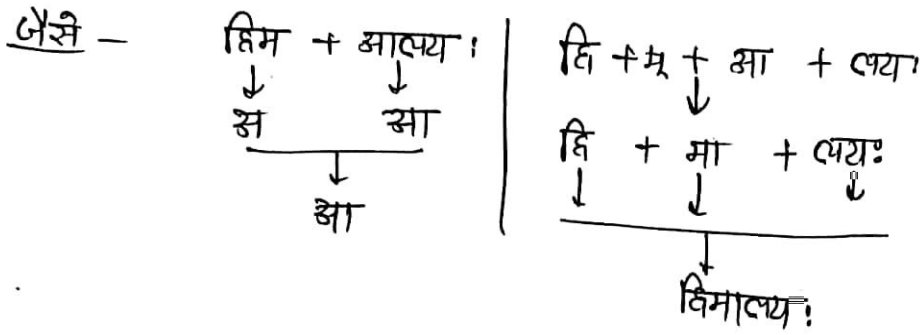 जैसे -
हिम + आलय :
अ आ
आ
हि + म् + आ + लय :
हि + मा + लयः
हिमालय :